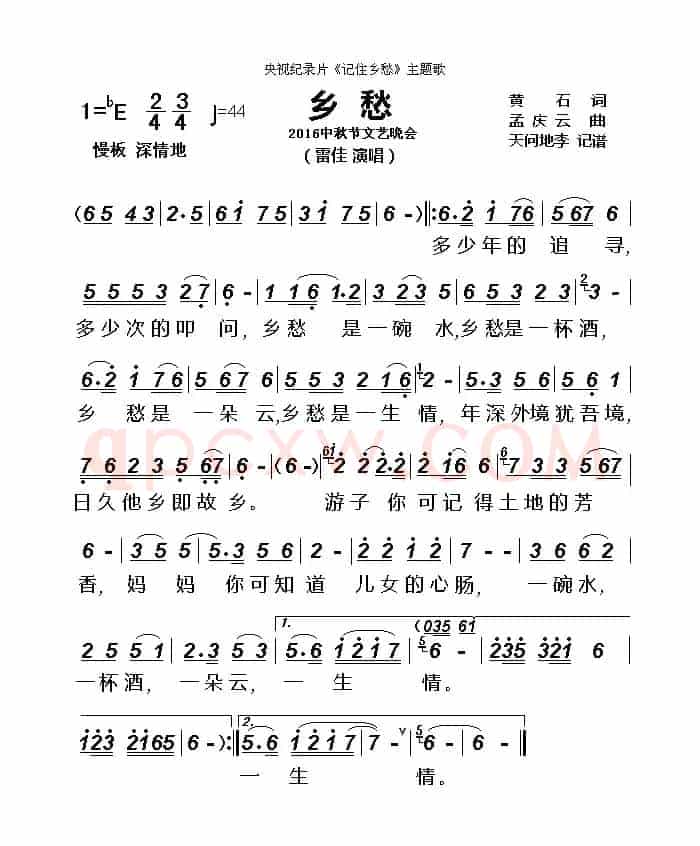 央视纪录片《记住乡愁》主题歌
1=ᵇE 2/4 3/4 ♩=44
乡愁
黄 石 词
2016中秋节文艺晚会
孟庆云 曲
慢板 深情地
(雷佳 演唱)
天问地李 记谱
(6 5 4 3 | 2· 5 | 6 1 7 5 | 3 1 7 5 | 6 - ) ‖: 6· 2 1 76 | 5 67 6 |
多少年的 追 寻,
5 5 5 3 2 7 | 6 - | 1 1 6 1·2 | 3 2 3 5 | 6 5 3 2 3 | 2 3 - |
多少次的叩 问,乡愁 是一碗 水,乡愁是一杯酒,
6· 2 1 7 6 | 5 67 6 | 5 5 5 3 2 1 6 | 1 2 - | 5· 3 5 6 | 5 6 1 |
乡 愁是 一朵 云,乡愁是一生 情, 年深外境犹吾境,
7 6 2 3 5 67 | 6 - | (6 -) | 61 2 2 2·2 | 2 1 6 6 | 6 7 3 3 5 67 |
日久他乡即故 乡。 游子 你 可记 得土地的芳
6 - | 3 5 5 | 5·3 5 6 | 2 - | 1 2 2 1 2 | 7 - | 3 6 6 2 |
香,妈 妈 你可知 道 儿女的心肠, 一碗水,
1. (035 61
2 5 5 1 | 2·3 5 3 | 5·6 1 2 1 7 | 5 6 - | 235 321 6 |
一杯酒, 一朵云, 一 生 情。
2.
123 2165 | 6 - ) :‖ 5·6 1 2 1 7 | 7 - ∨ | 5 6 - | 6 - ‖
一 生 情。
qpcxw.COM